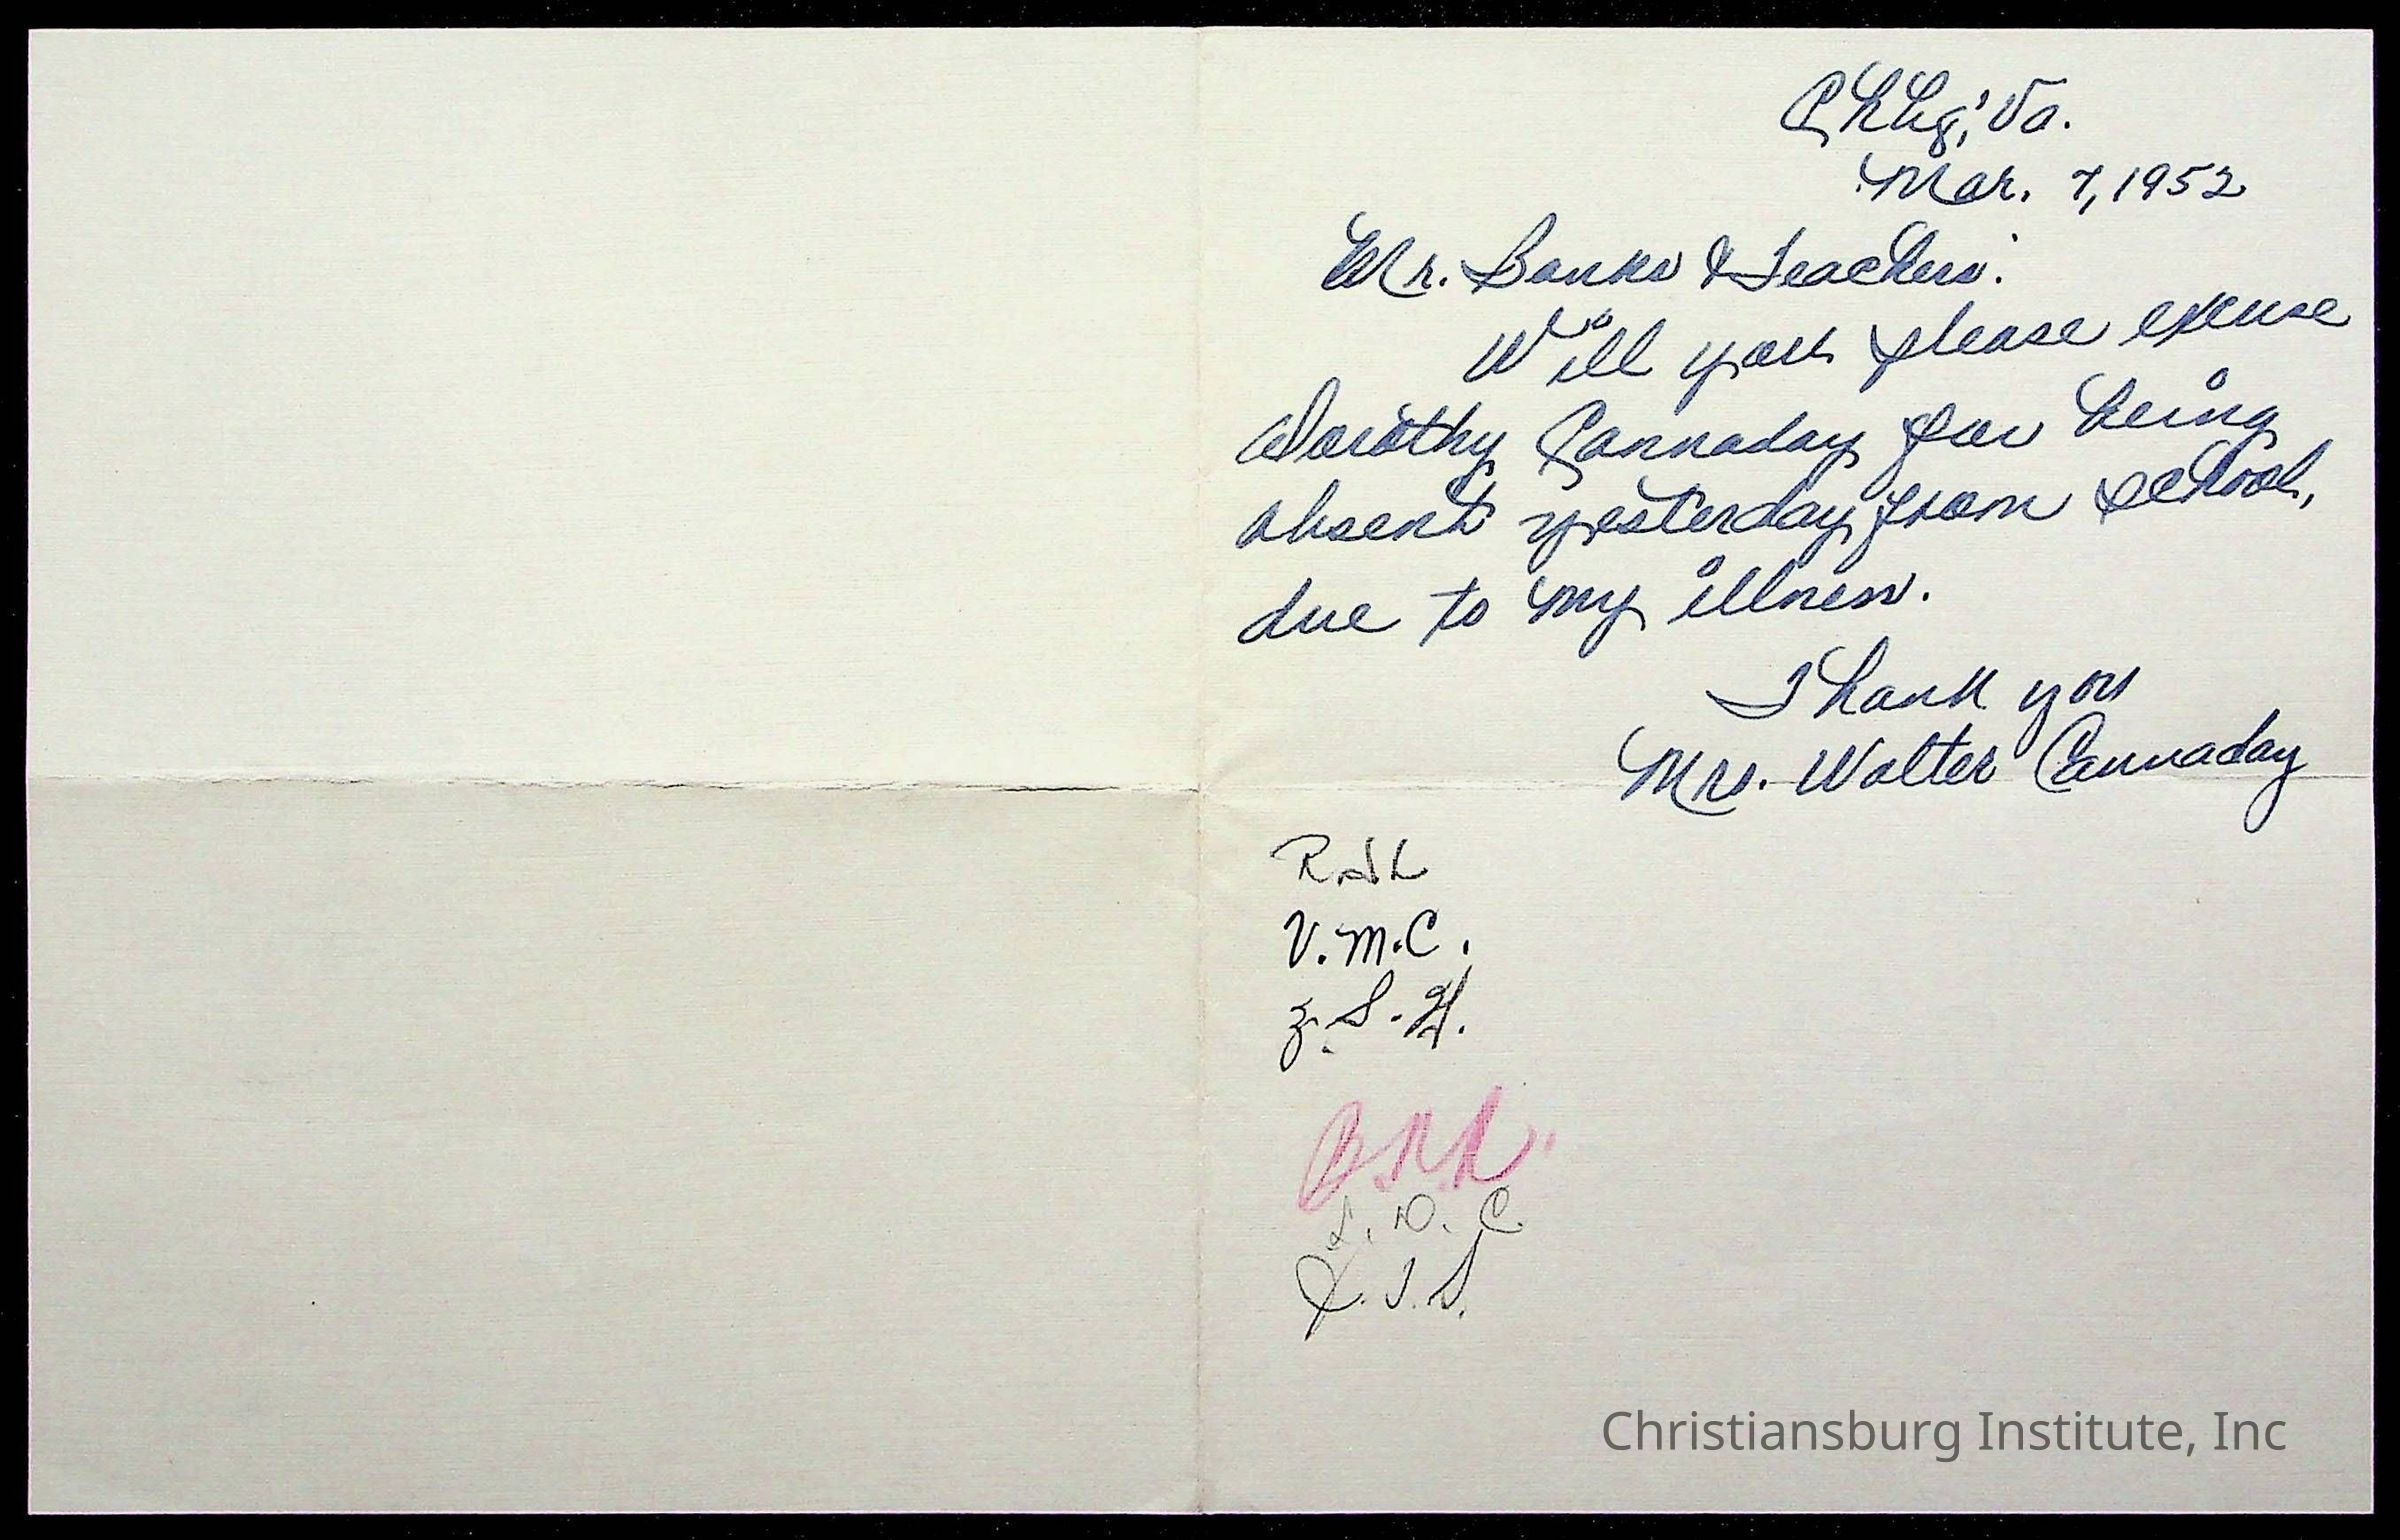 Chbg, Va.
Mar. 7, 1952
Mr. Banks & Teachers:
Will you please excuse
Dorothy Cannaday for being
absent yesterday from school,
due to my illness.
Thank you
Mrs. Walter Cannaday
V.M.C.
Z.S.H.
L.D.C.
J.I.S.
Christiansburg Institute, Inc